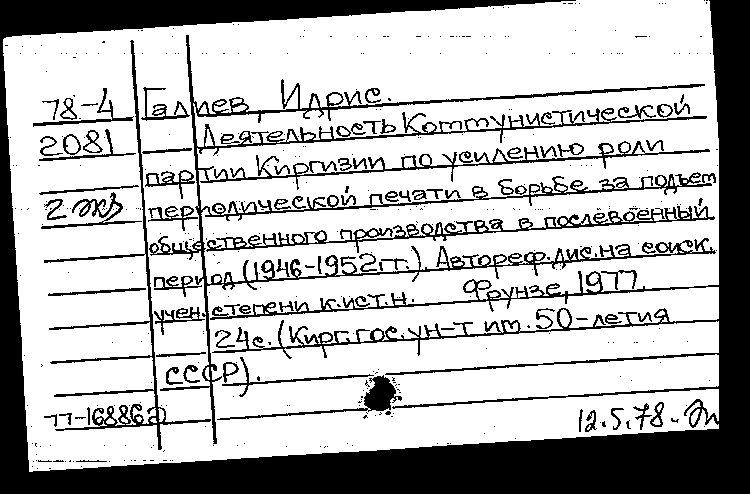 78-4 Галиев, Идрис.
2081 Деятельность Коммунистической
партии Киргизии по усилению роли
2 экз периодической печати в борьбе за подъем
общественного производства в послевоенный
период (1946-1952гг.). Автореф.дис.на соиск.
учен.степени к.ист.н. Фрунзе, 1977.
24с. (Кирг.гос.ун-т им. 50-летия
СССР).
77-16886а
12.5.78.